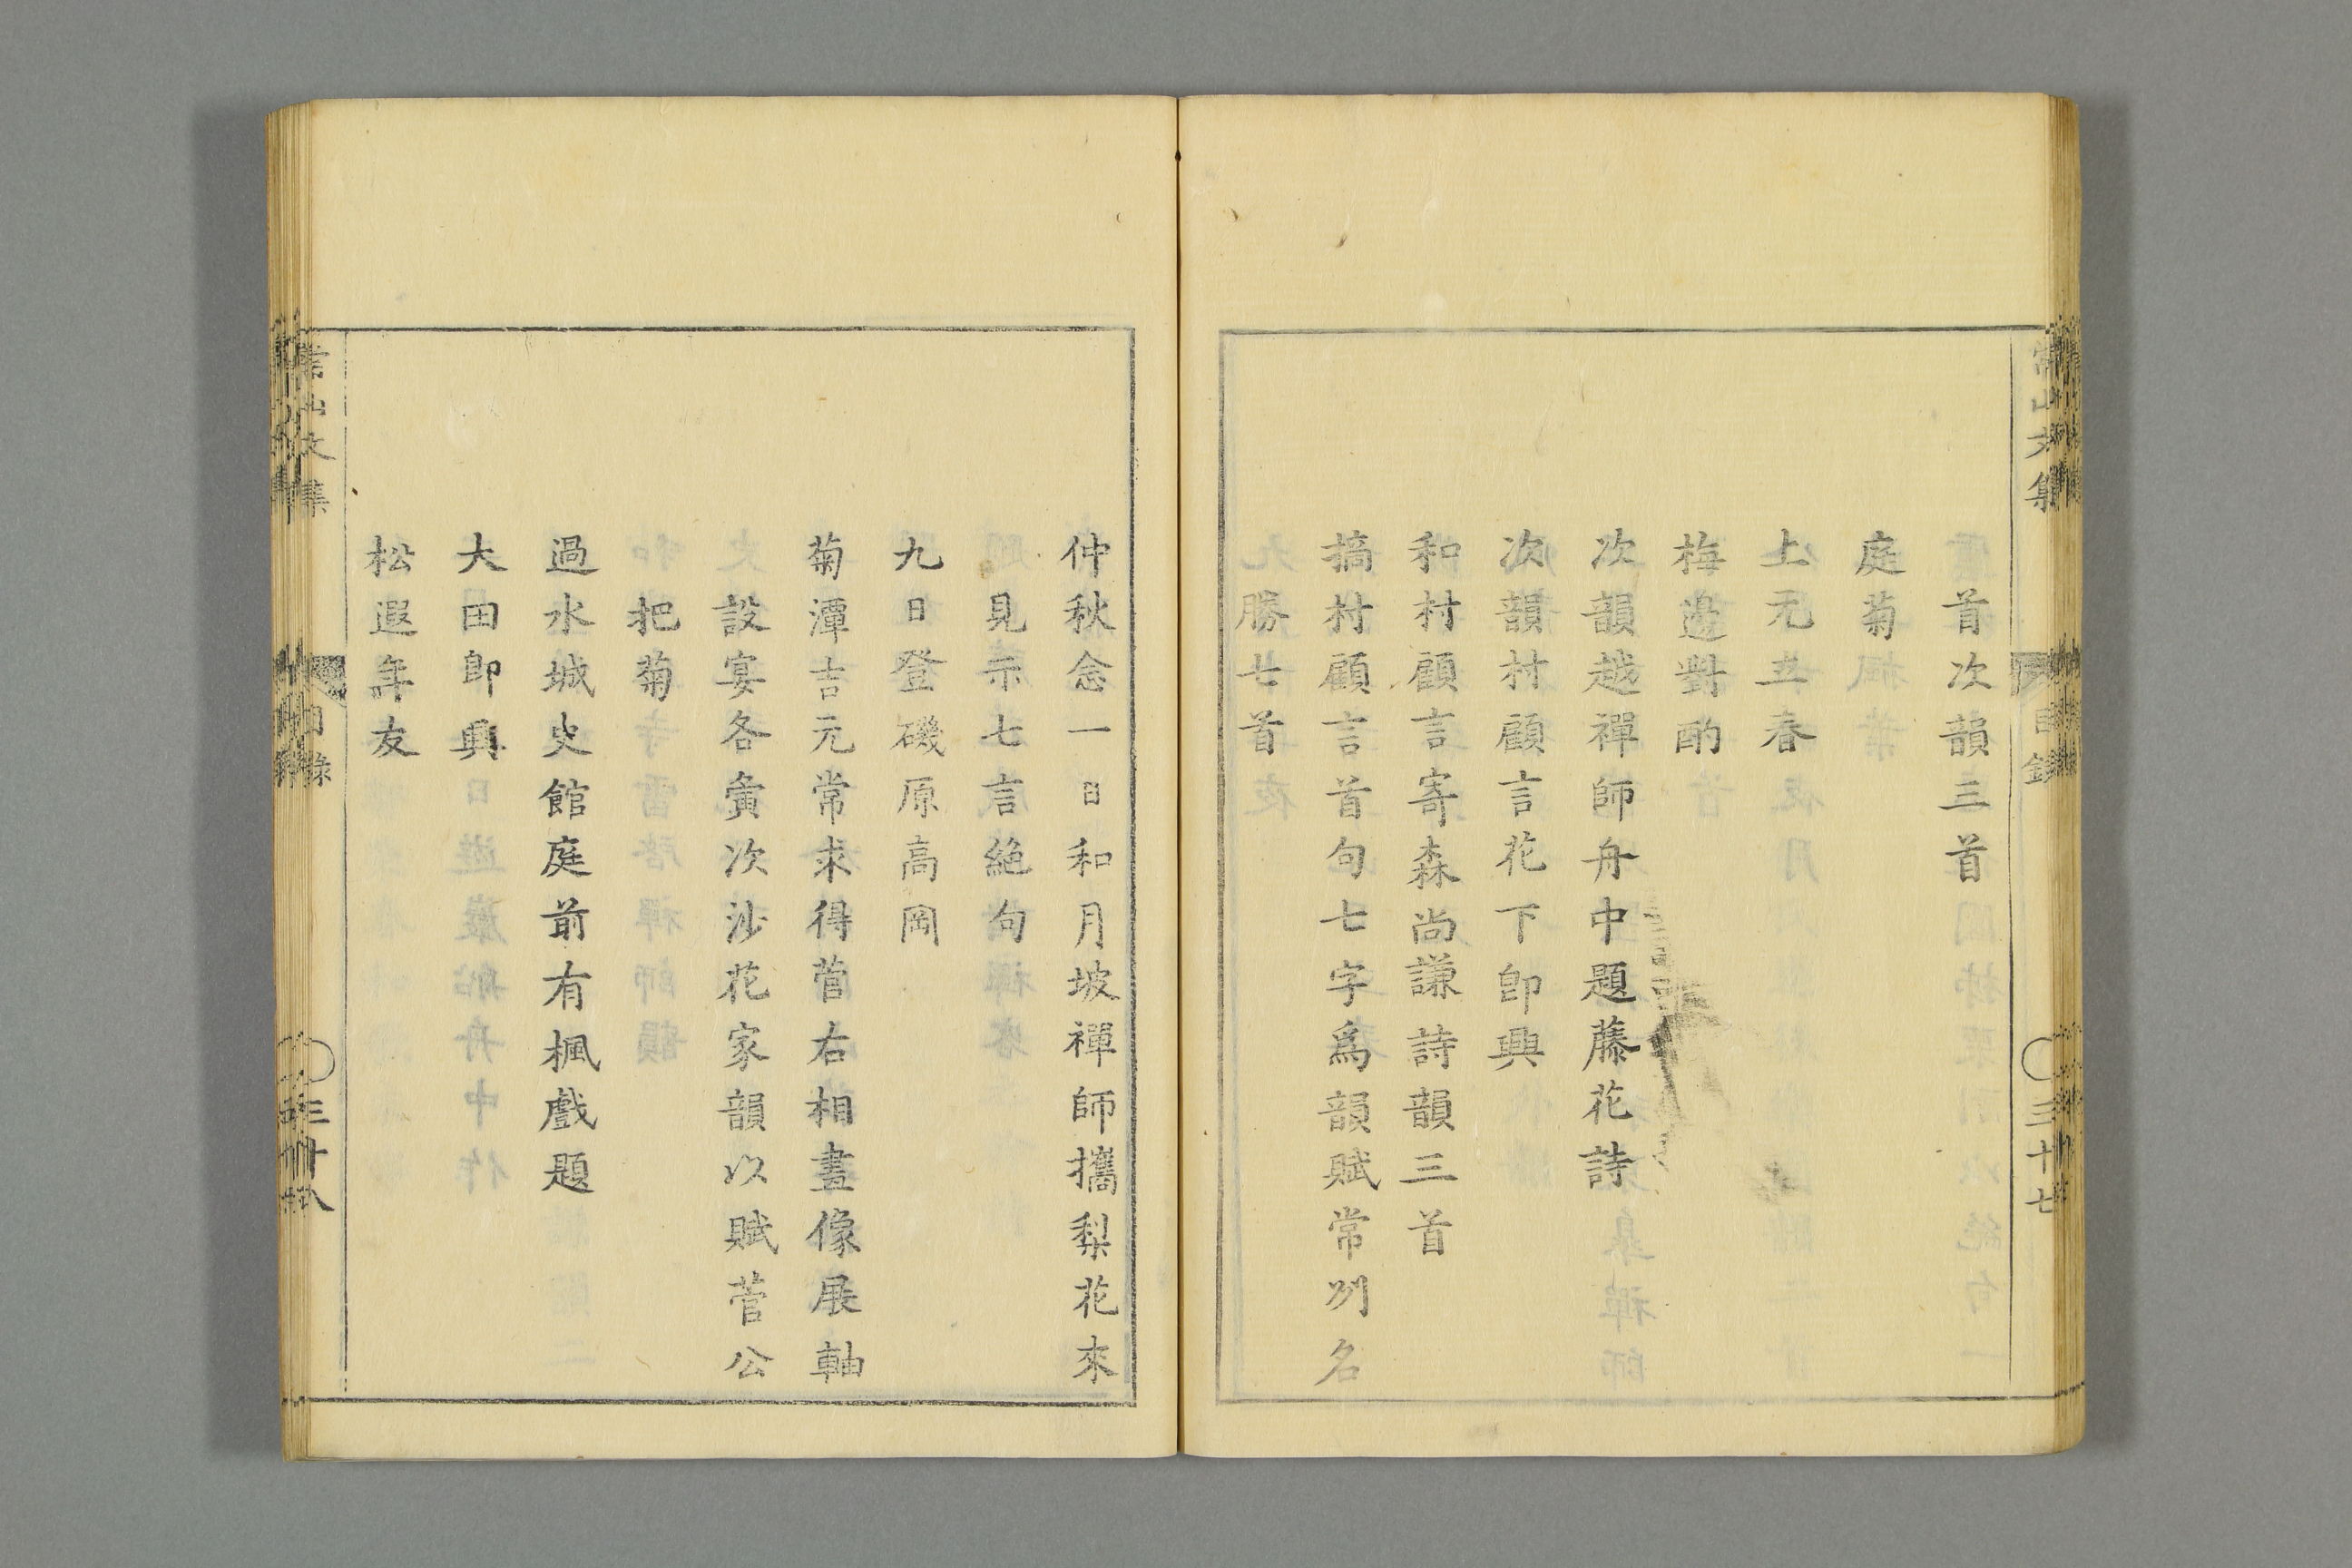 常山文集
目錄
三十七
首次韻三首
庭菊
上元立春
梅邊對酌
次韻越禪師舟中題藤花詩
次韻村顧言花下即興
和村顧言寄森尚謙詩韻三首
摘村顧言首句七字爲韻賦常州名
九勝七首
仲秋念一日和月坡禪師攜梨花來
見示七言絕句
九日登磯原高岡
菊潭吉元常求得菅右相畫像展軸
設宴各賡次涉花家韻以賦菅公
把菊
過水城史館庭前有楓戲題
大田即興
松遐年友
常山文集
目錄
三十八